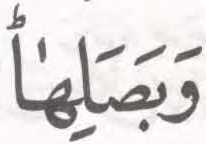 وَبَصَلِهَاؕ